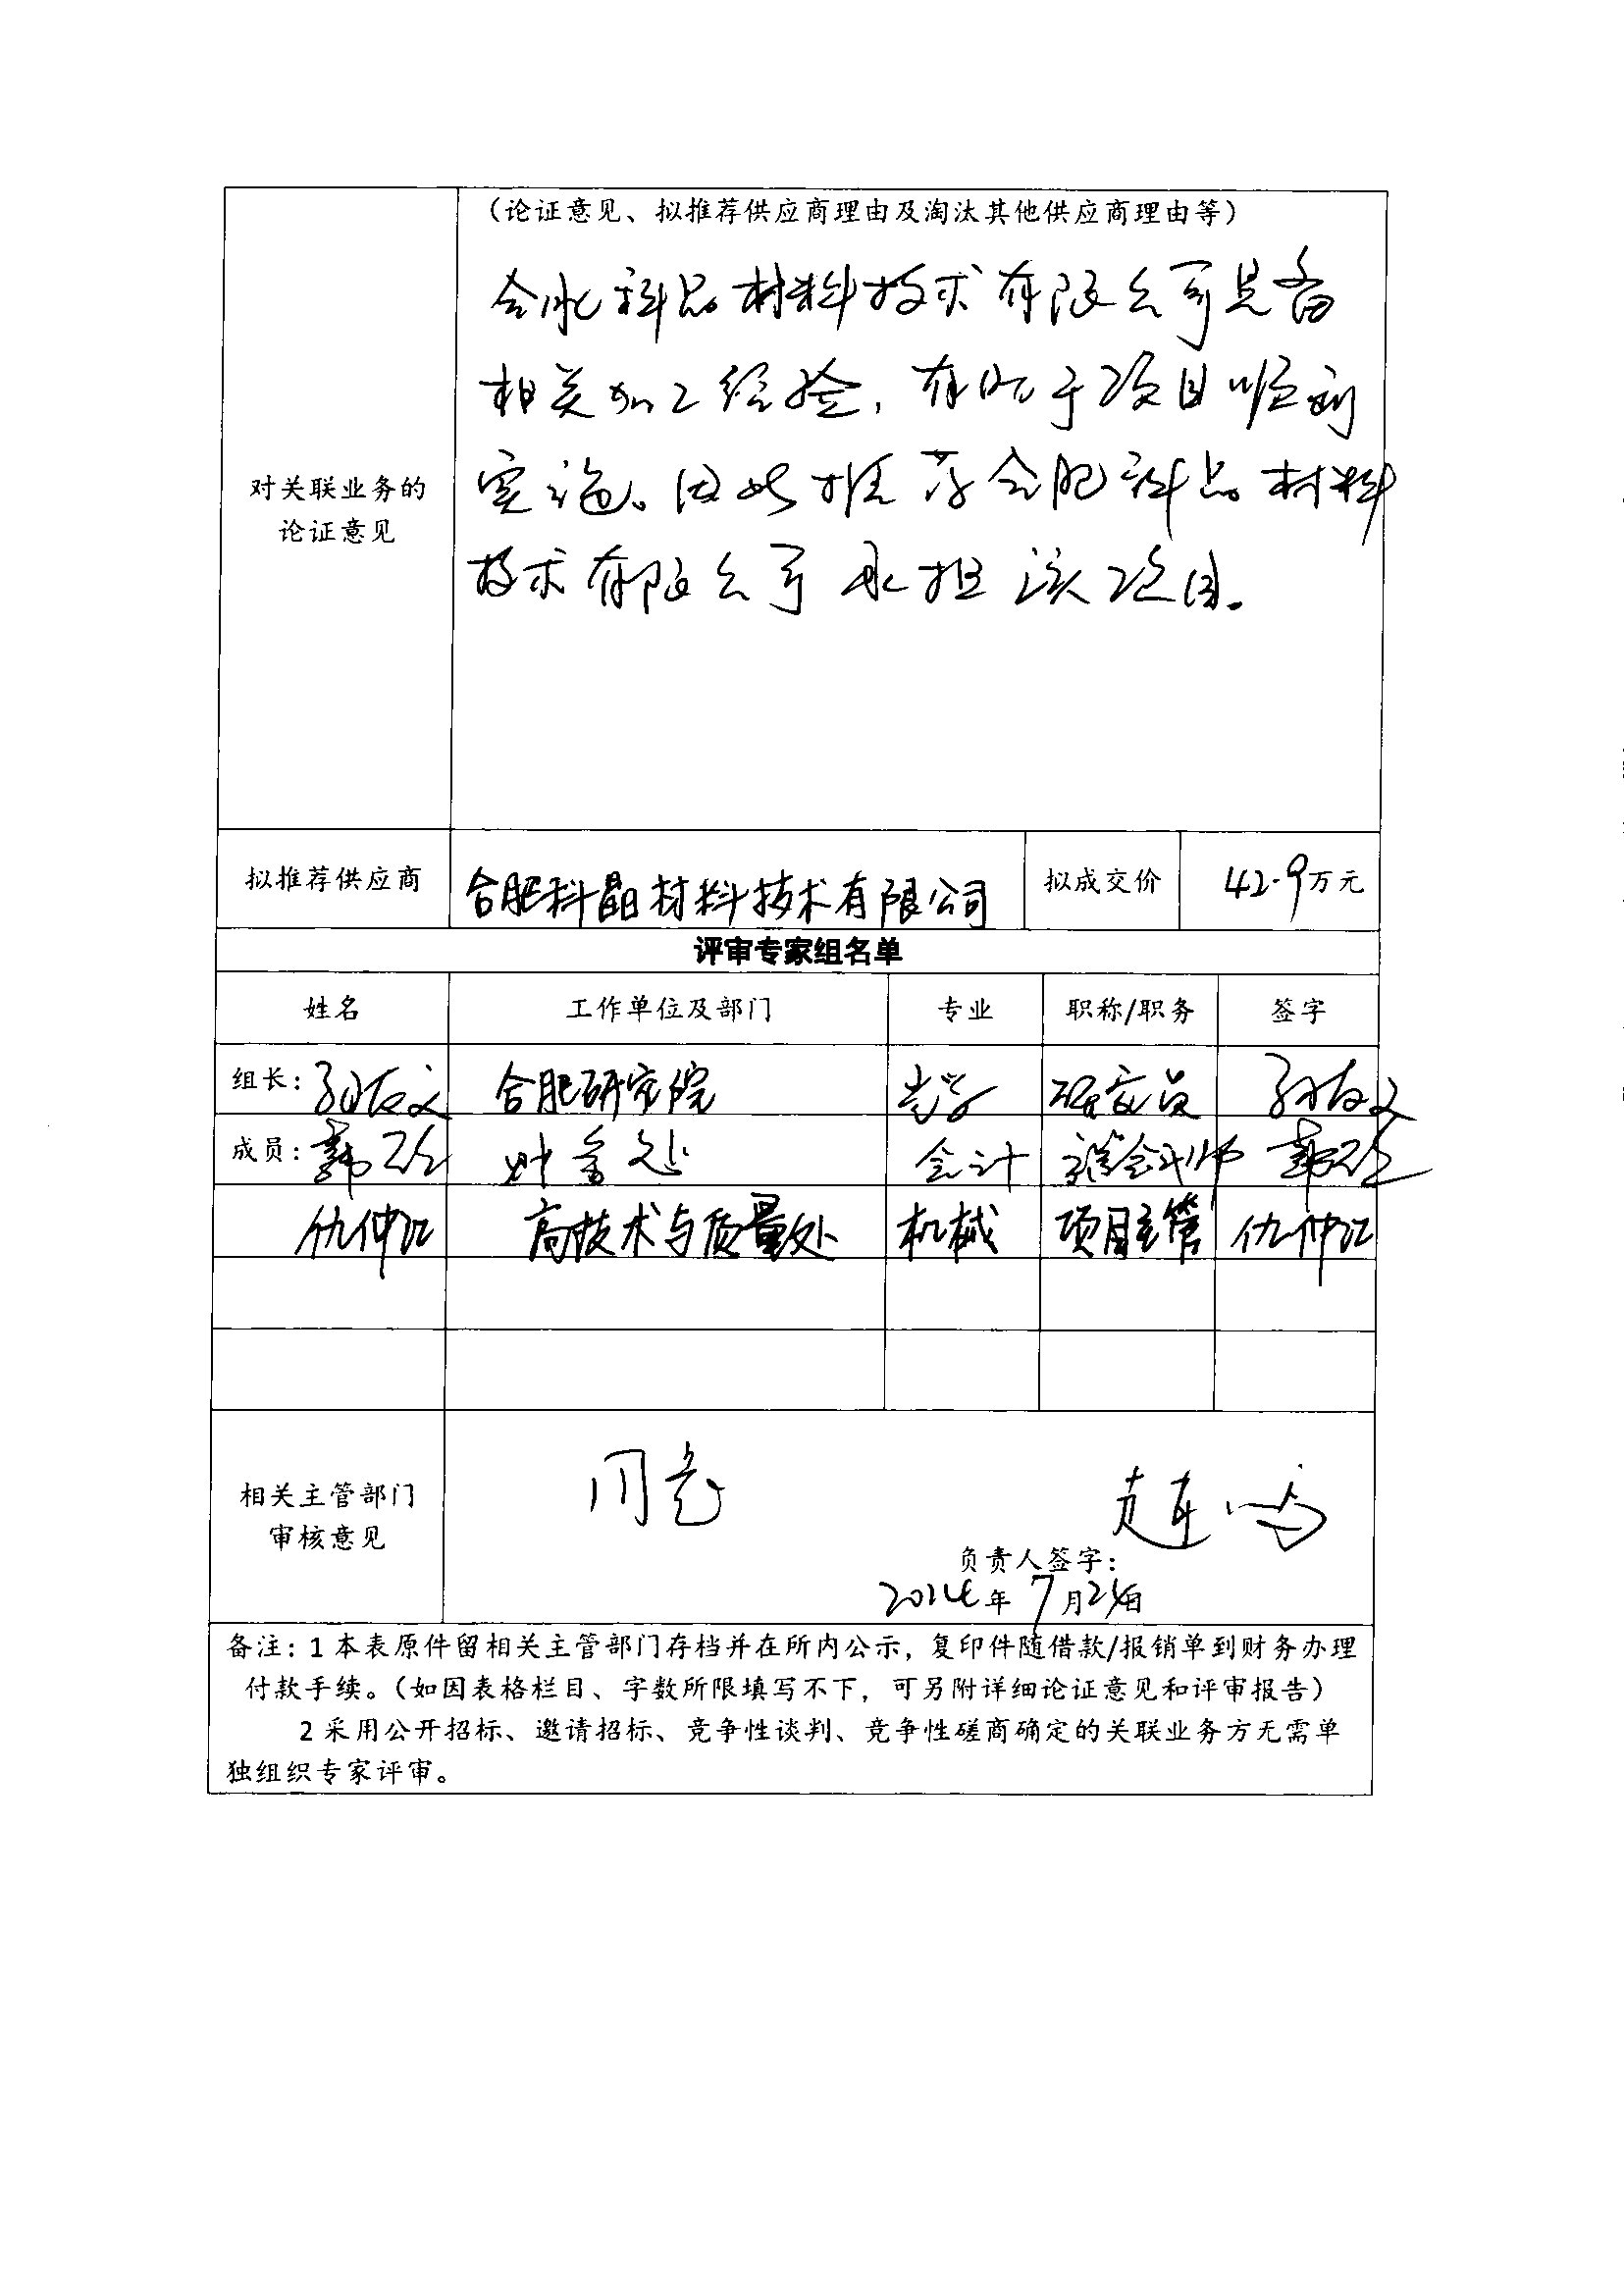 （论证意见、拟推荐供应商理由及淘汰其他供应商理由等）
合肥科晶材料技术有限公司具备
相关加工经验，有助于项目顺利
实施。因此推荐合肥科晶材料
技术有限公司承担该项目。
对关联业务的
论证意见
拟推荐供应商 合肥科晶材料技术有限公司 拟成交价 42.9万元
评审专家组名单
姓名 工作单位及部门 专业 职称/职务 签字
组长： 合肥研究院 光学 研究员
成员： 财务处 会计
仇仲 高技术与质量处 机械 项目主管 仇仲
相关主管部门
审核意见
同意
负责人签字：
年7月 日
备注：1 本表原件留相关主管部门存档并在所内公示，复印件随借款/报销单到财务办理
付款手续。（如因表格栏目、字数所限填写不下，可另附详细论证意见和评审报告）
2 采用公开招标、邀请招标、竞争性谈判、竞争性磋商确定的关联业务方无需单
独组织专家评审。